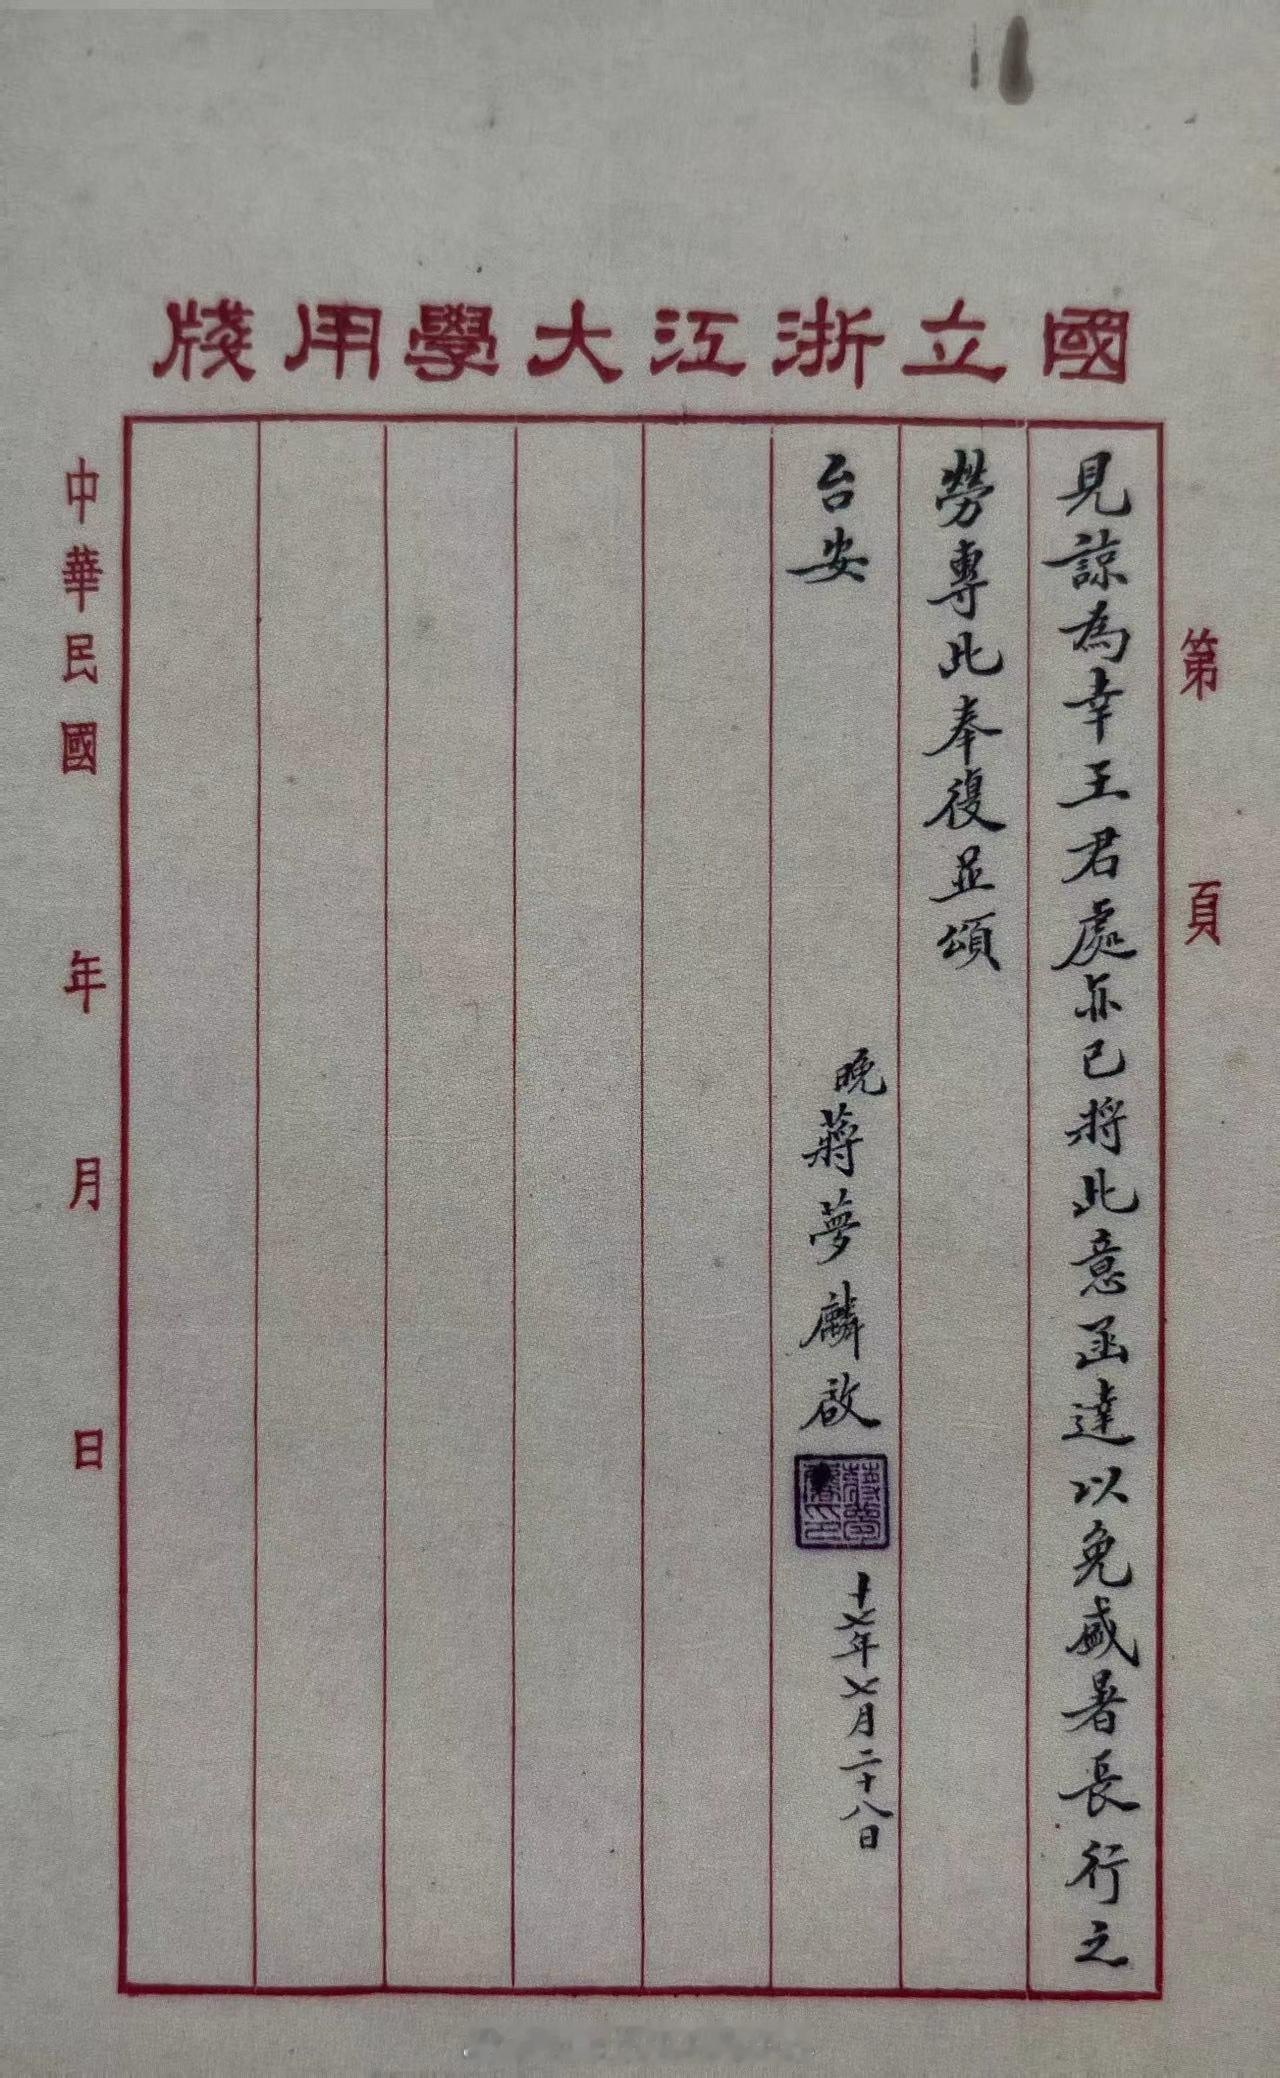 國立浙江大學用牋
第 頁
見諒為幸王君處亦已將此意函達以免盛暑長行之
勞專此奉復並頌
台安
晚蔣夢麟啟
蔣夢麟印
十七年七月二十八日
中華民國 年 月 日